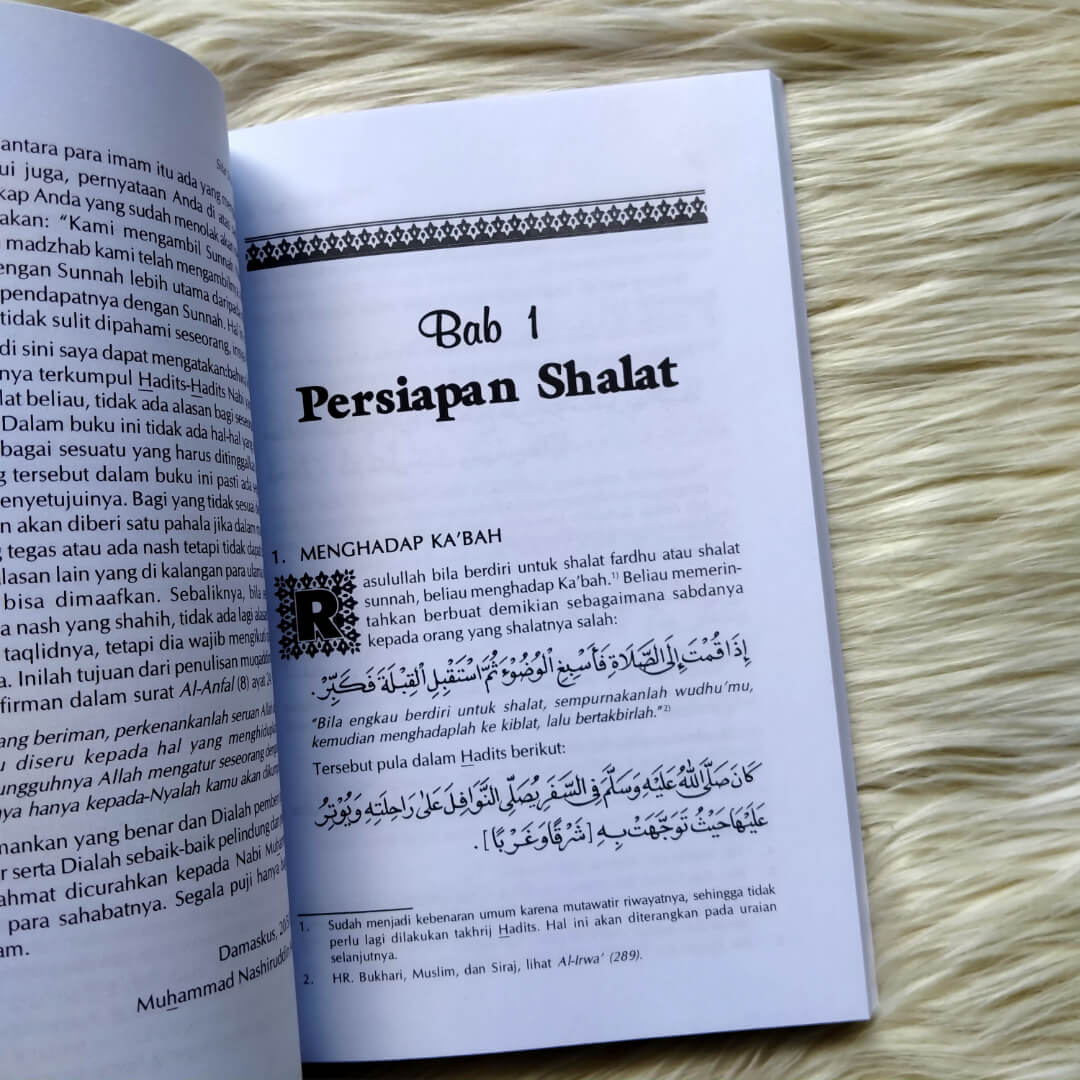 antara para imam itu ada yang
juga, pernyataan Anda di atas
Anda yang sudah menolak akan
"Kami mengambil Sunnah
madzhab kami telah mengambilnya
Sunnah lebih utama daripada
pendapatnya dengan Sunnah. Hal
tidak sulit dipahami seseorang,
di sini saya dapat mengatakan:bahwa
terkumpul Hadits-Hadits Nabi
beliau, tidak ada alasan bagi
Dalam buku ini tidak ada hal-hal yang
sesuatu yang harus
tersebut dalam buku ini pasti ada
Bagi yang tidak sesuai
akan diberi satu pahala jika dalam
tegas atau ada nash tetapi tidak dapat
lain yang di kalangan para ulama
bisa dimaafkan. Sebaliknya, bila
nash yang shahih, tidak ada lagi alasan
taqlidnya, tetapi dia wajib mengikuti
Inilah tujuan dari penulisan
dalam surat Al-Anfal (8) ayat 24
beriman, perkenankanlah seruan Allah
diseru kepada hal yang
Allah mengatur seseorang dengan
hanya kepada-Nyalah kamu akan
yang benar dan Dialah
serta Dialah sebaik-baik pelindung dan
dicurahkan kepada Nabi
para sahabatnya. Segala puji hanya
Damaskus,
Muhammad Nashiruddin
Bab 1
Persiapan Shalat
1. MENGHADAP KA'BAH
Rasulullah bila berdiri untuk shalat fardhu atau shalat
sunnah, beliau menghadap Ka'bah.1) Beliau memerin-
tahkan berbuat demikian sebagaimana sabdanya
kepada orang yang shalatnya salah:
إِذَا قُمْتَ إِلَى الصَّلَاةِ فَأَسْبِغِ الْوُضُوْءَ ثُمَّ اسْتَقْبِلِ الْقِبْلَةَ فَكَبِّرْ.
"Bila engkau berdiri untuk shalat, sempurnakanlah wudhu'mu,
kemudian menghadaplah ke kiblat, lalu bertakbirlah."2)
Tersebut pula dalam Hadits berikut:
كَانَ صَلَّى اللهُ عَلَيْهِ وَسَلَّمَ فِى السَّفَرِ يُصَلِّى النَّوَافِلَ عَلَى رَاحِلَتِهِ وَيُوْتِرُ
عَلَيْهَا حَيْثُ تَوَجَّهَتْ بِهِ [شَرْقًا وَغَرْبًا].
1. Sudah menjadi kebenaran umum karena mutawatir riwayatnya, sehingga tidak
perlu lagi dilakukan takhrij Hadits. Hal ini akan diterangkan pada uraian
selanjutnya.
2. HR. Bukhari, Muslim, dan Siraj, lihat Al-Irwa' (289).